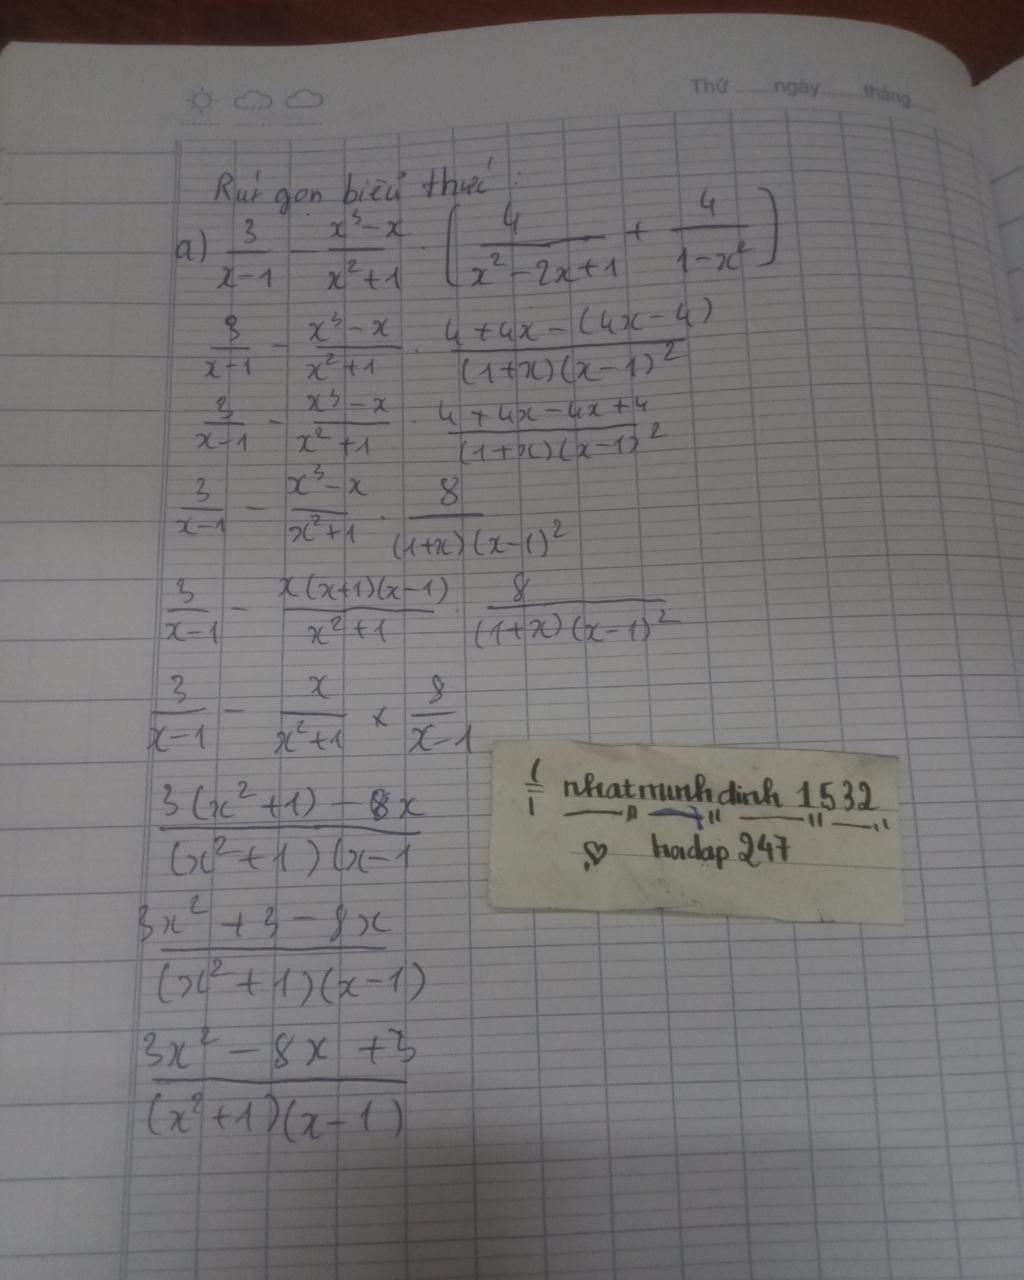 Thứ ngày tháng
Rút gọn biểu thức:
a) 3/(x-1) - (x³-x)/(x²+1) · [4/(x²-2x+1) + 4/(1-x²)]
3/(x-1) - (x³-x)/(x²+1) · (4+4x-(4x-4))/((1+x)(x-1)²)
3/(x-1) - (x³-x)/(x²+1) · (4+4x-4x+4)/((1+x)(x-1)²)
3/(x-1) - (x³-x)/(x²+1) · 8/((1+x)(x-1)²)
3/(x-1) - x(x+1)(x-1)/(x²+1) · 8/((1+x)(x-1)²)
3/(x-1) - x/(x²+1) × 8/(x-1)
(3(x²+1)-8x)/((x²+1)(x-1
(3x²+3-8x)/((x²+1)(x-1))
(3x²-8x+3)/((x²+1)(x-1))
nhatminhdinh 1532
hoidap 247